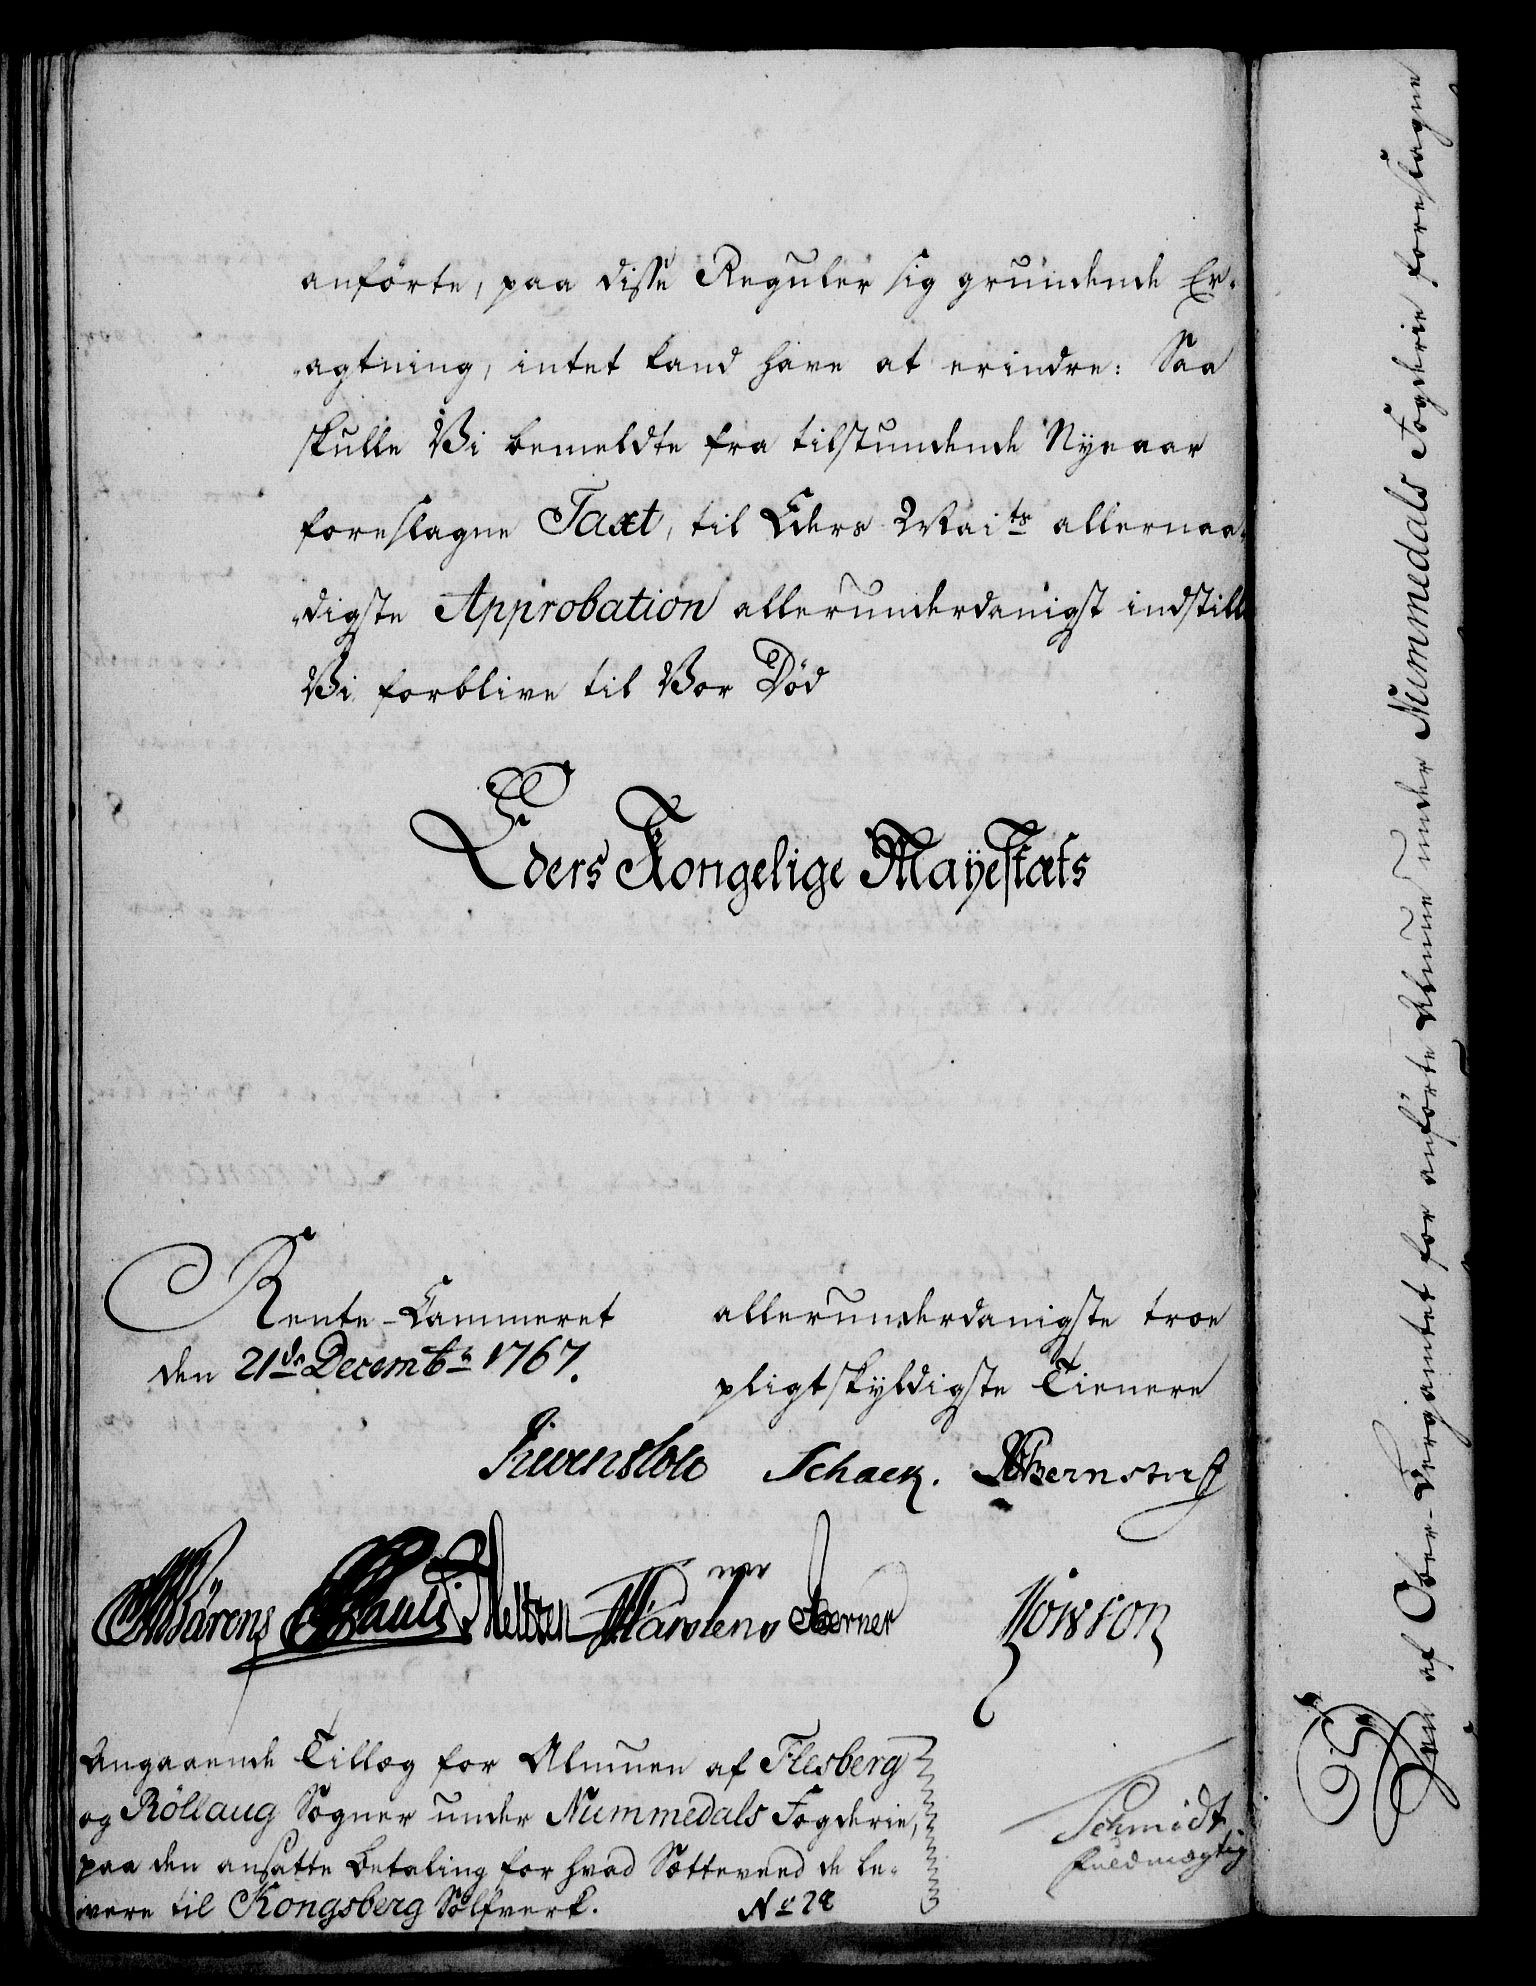 anförte, paa disse Reguler sig grundende Er-
agtning, intet kand have at erindre: Saa
skulle Vi bemeldte fra tilstundende Nyeaar
foreslagne Taxt, til Eders Mai<sup>ts</sup> allernaa-
digste Approbation allerunderdanigst indstill
Vi forblive til Vor Død
Eders Kongelige Mayestæts
Rente-Cammeret
den 21<sup>de</sup> Decemb<sup>r</sup> 1767.
allerunderdanigste troe
pligtskyldigste Tienere
Schack. Bernstorff
Bärens Pauli Meltzen Karstens Berner
Angaaende Tillæg for Almuen af Flesberg
og Röllaug Sogner under Nummedals Fogderie,
paa den ansatte Betaling for hvad Sætteveed de le-
vere til Kongsberg Sølfverk.
N° 28
Schmidt
fuldmægtig
Den af Ober-Bergamtet for anförte Almue under Nummedals Fogderie foreslagne